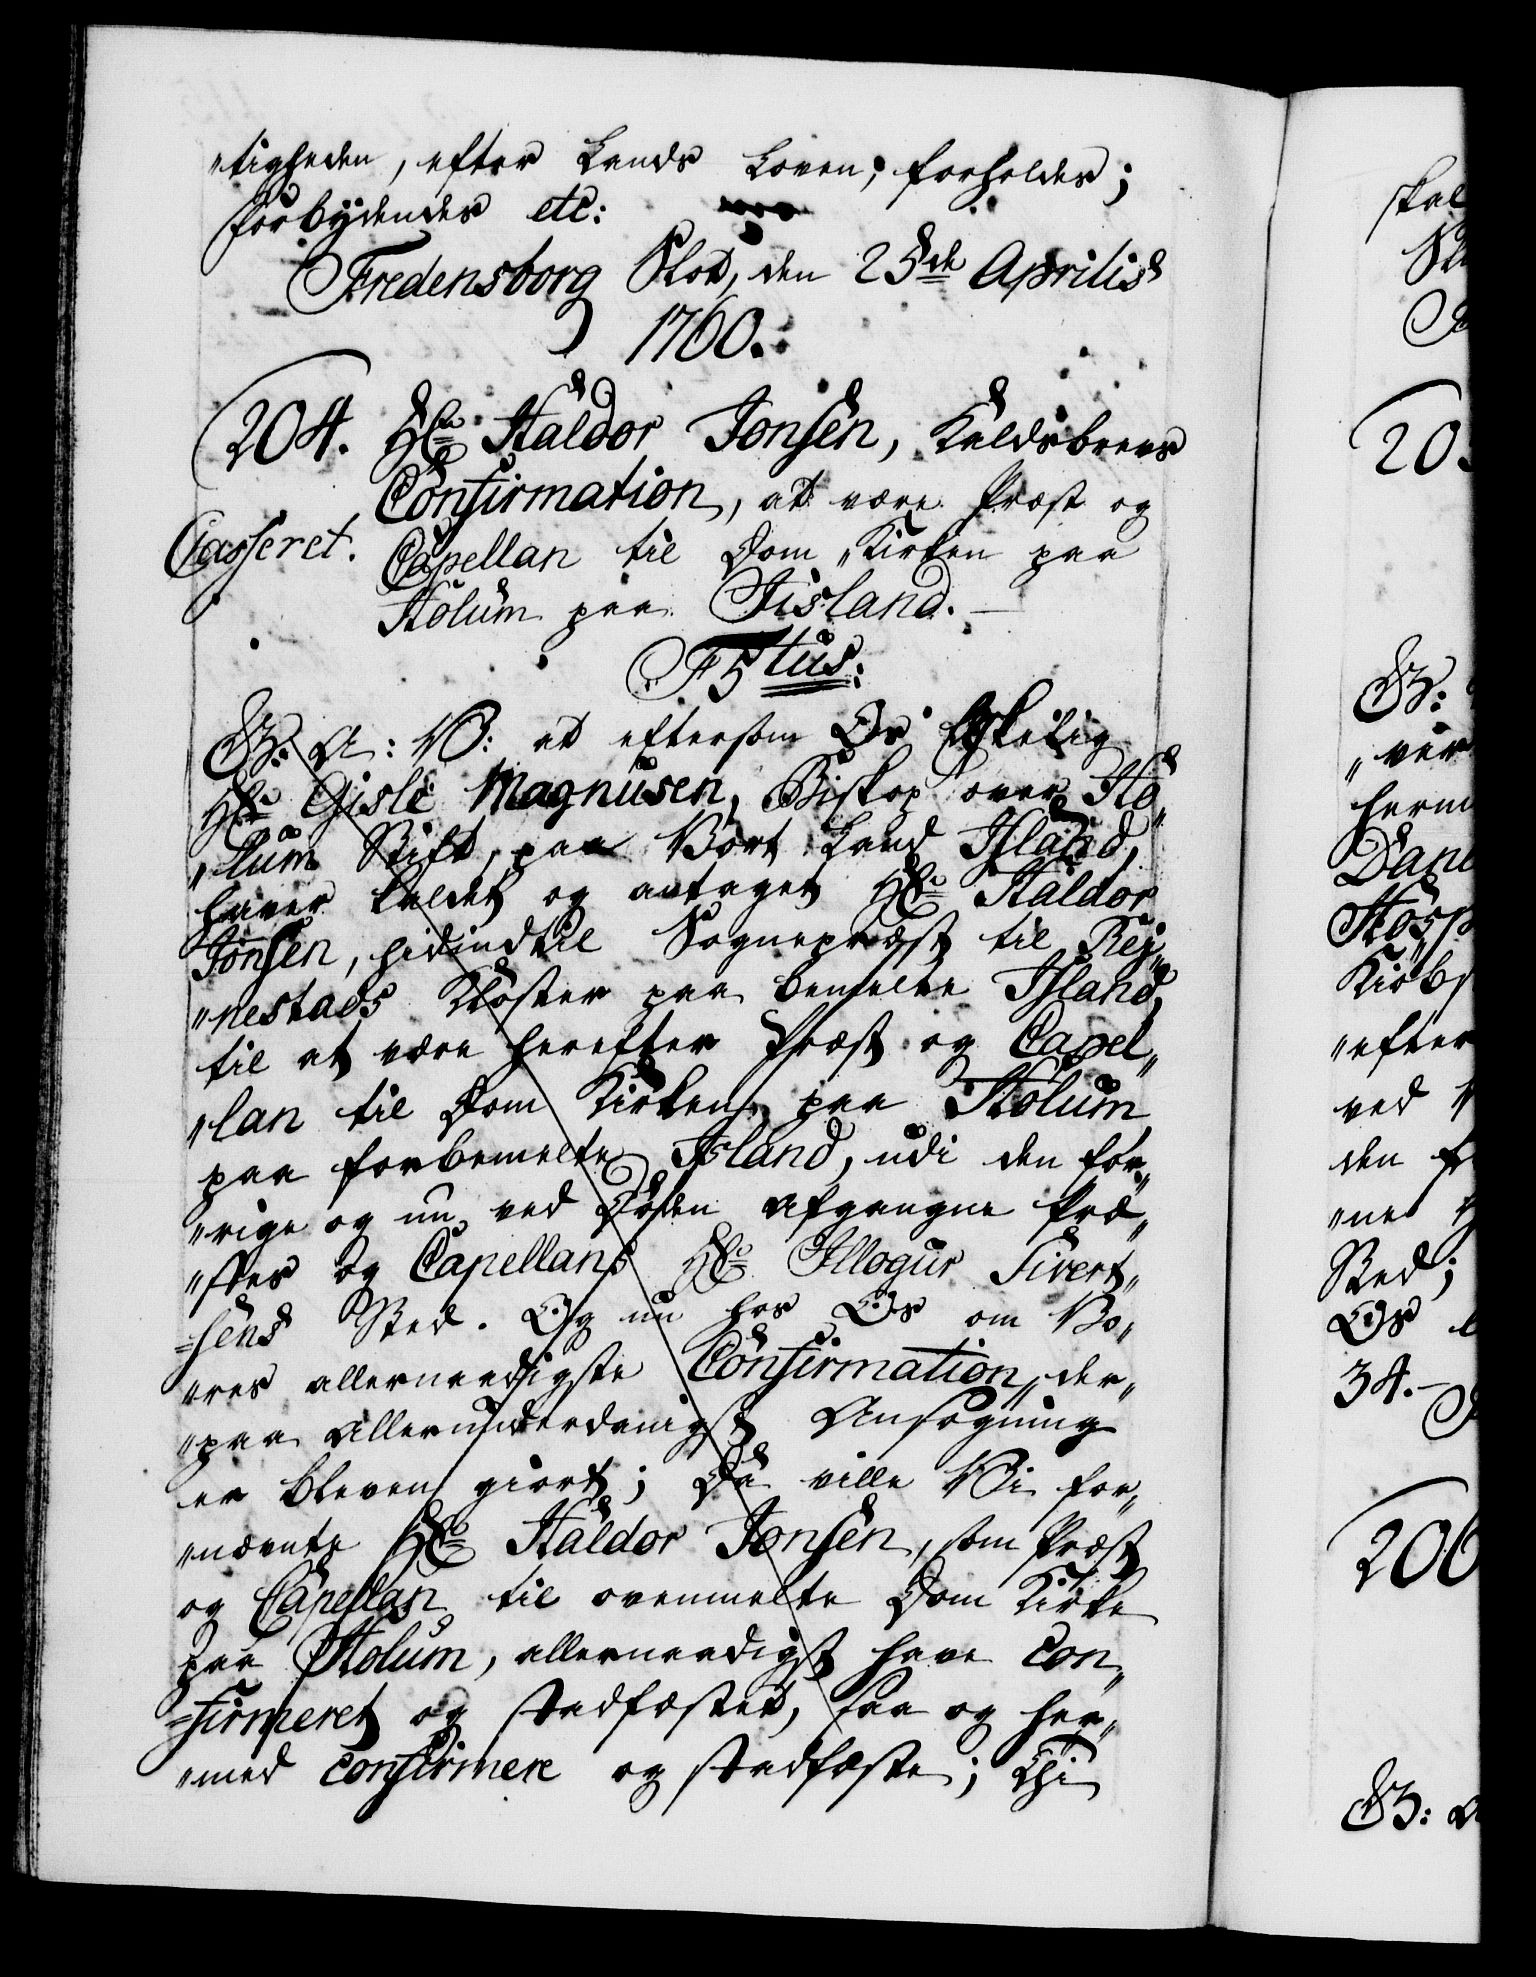 "tigheden, efter Lands Loven, forholder;
forbÿdendes etc:
Fredensborg Slot, den 25de Aprilis
1760.
204. Hr. Haldor Jonsen, Kaldsbrevs
Confirmation, at være Præst og
Casseret. Capellan til Dom Kirken paa
Holum paa Jisland.
F5tus:
G: A: V: at eftersom Os Elskelig
Hr. Gisle Magnusen, Biskop over Ho„
„lum Stift, paa Vort Land Jsland,
haver kaldet og antaget Hr. Haldor
Jonsen, hidindtil Sognepræst til Rej„
„nestads Kloster paa bemelte Jsland,
til at være herefter Præst og Capel„
„lan til Dom Kirken paa Holum
paa forbemelte Jsland, udi den for„
„rige og nu ved Døden afgangne Præ„
„stes og Capellans Hr. Illogur Sivert„
=sens Sted. Og nu hos Os om Vo„
„res allernaadigste Confirmation der„
„paa allerunderdanigst Ansøgning
er bleven giort; Da ville Vi for„
„nævnte Hr. Haldor Jonsen, som Præst
og Capellan til ovenmelte Dom Kirke
paa Holum, allernaadigst have con„
=firmeret og stadfæstet, saa og her„
„med confirmere og stadfæste; Thi
skal
20
G:
„ver
herm
Dan
Hosp
Kiøb
„efter
ved
den
„nes
Sted;
Os
34.
206
G: A